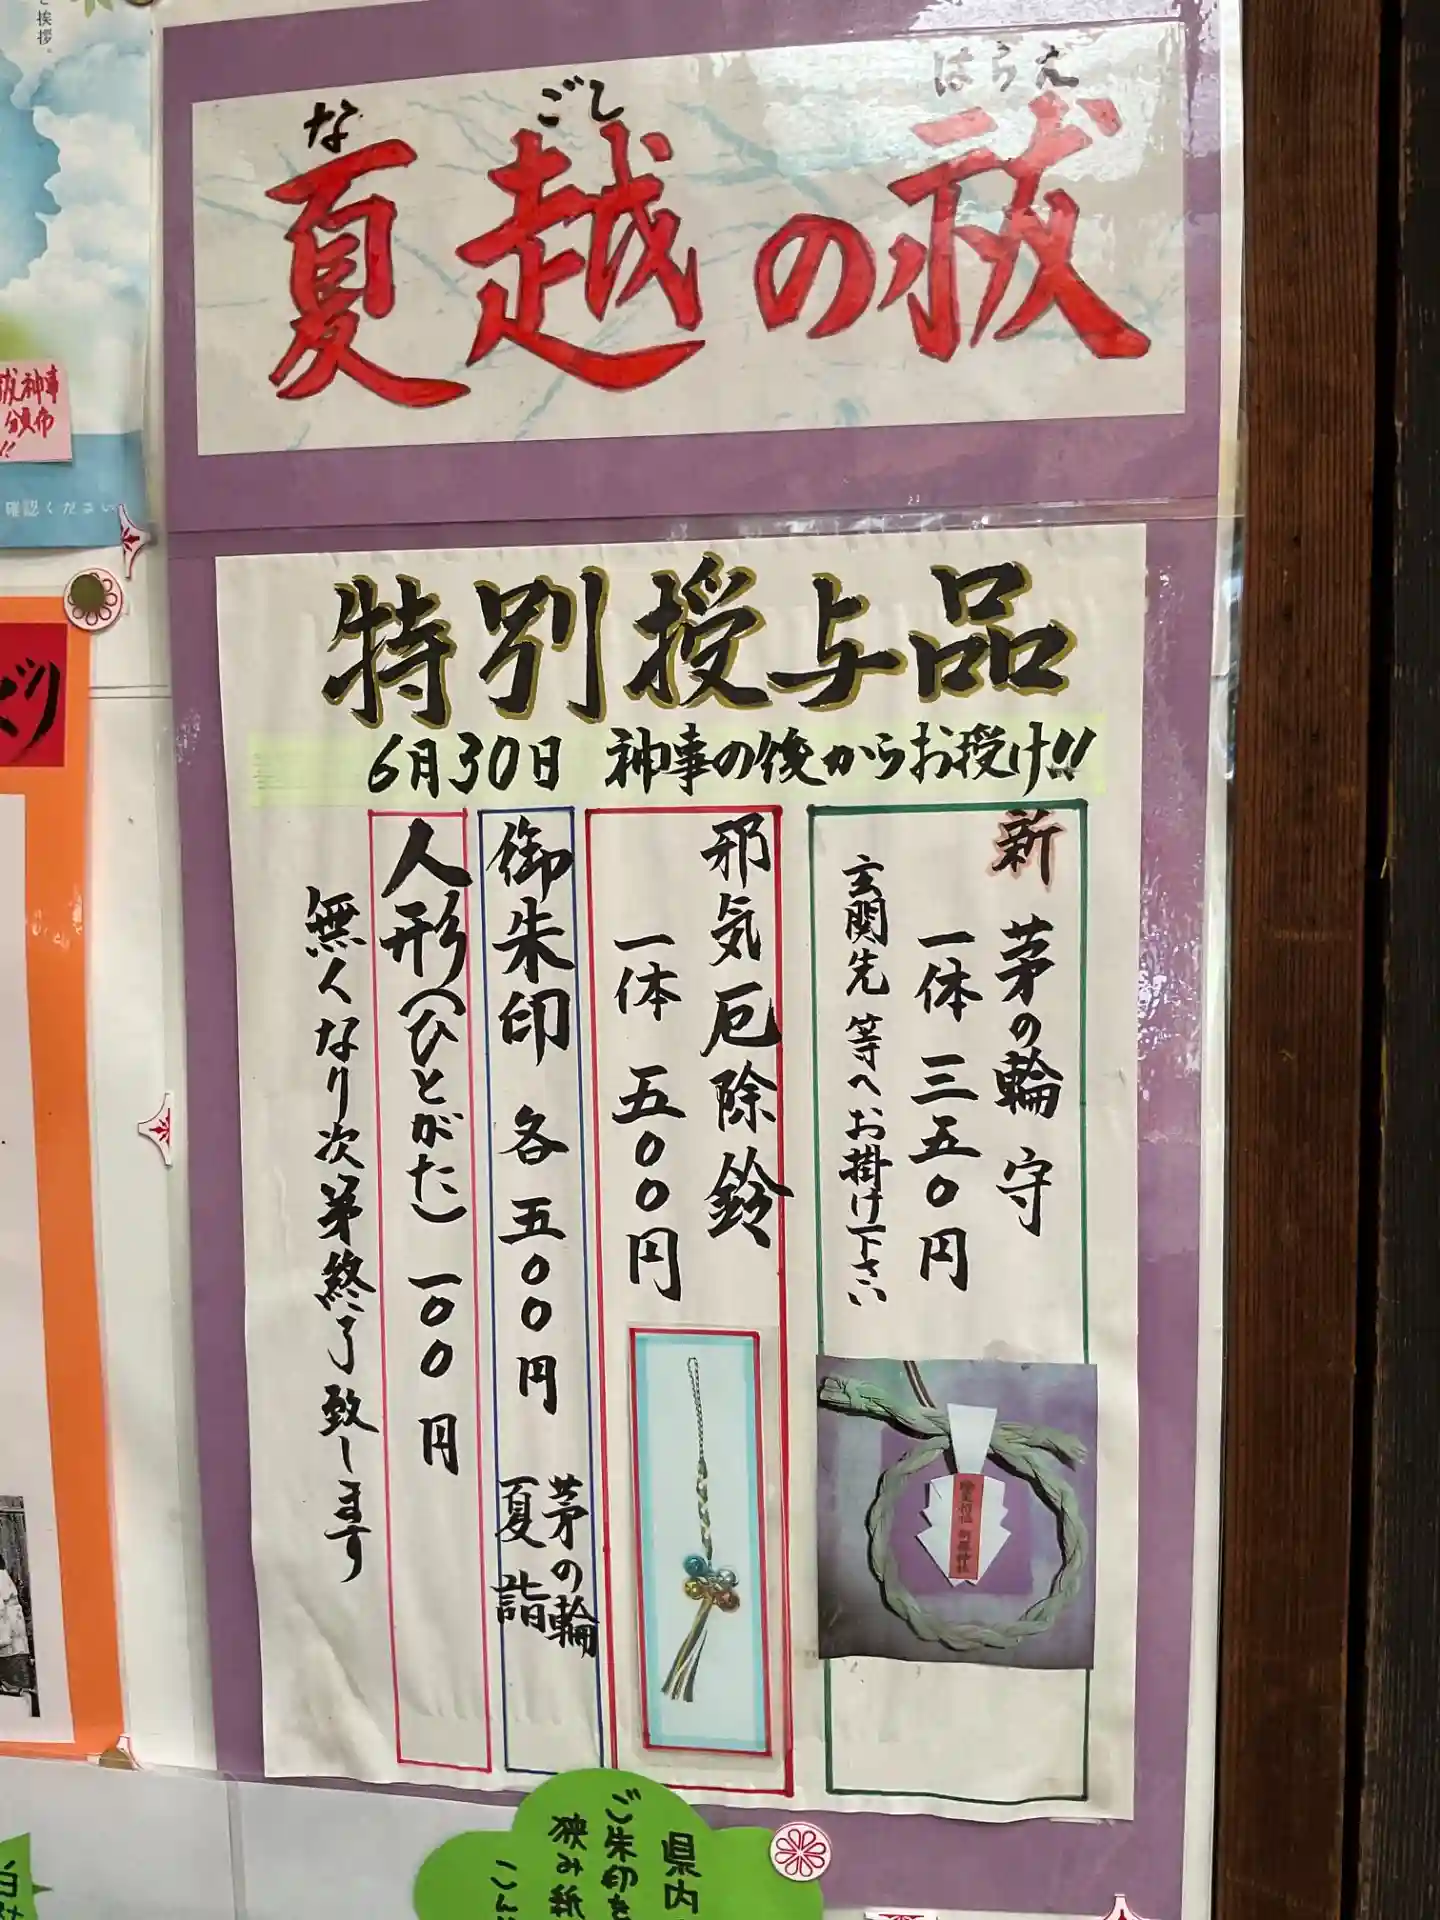 なごしはらえ
夏越の祓
特別授与品
6月30日 神事の後からお授け!!
新 茅の輪守
一体 三五〇円
玄関先等へお掛け下さい
邪気厄除鈴
一体 五〇〇円
御朱印 各五〇〇円 茅の輪
夏詣
人形(ひとがた) 一〇〇円
無くなり次第終了致します
県内
ご朱印を
挟み紙
ご挨拶。
神事
頒布
!!
確認ください
どり